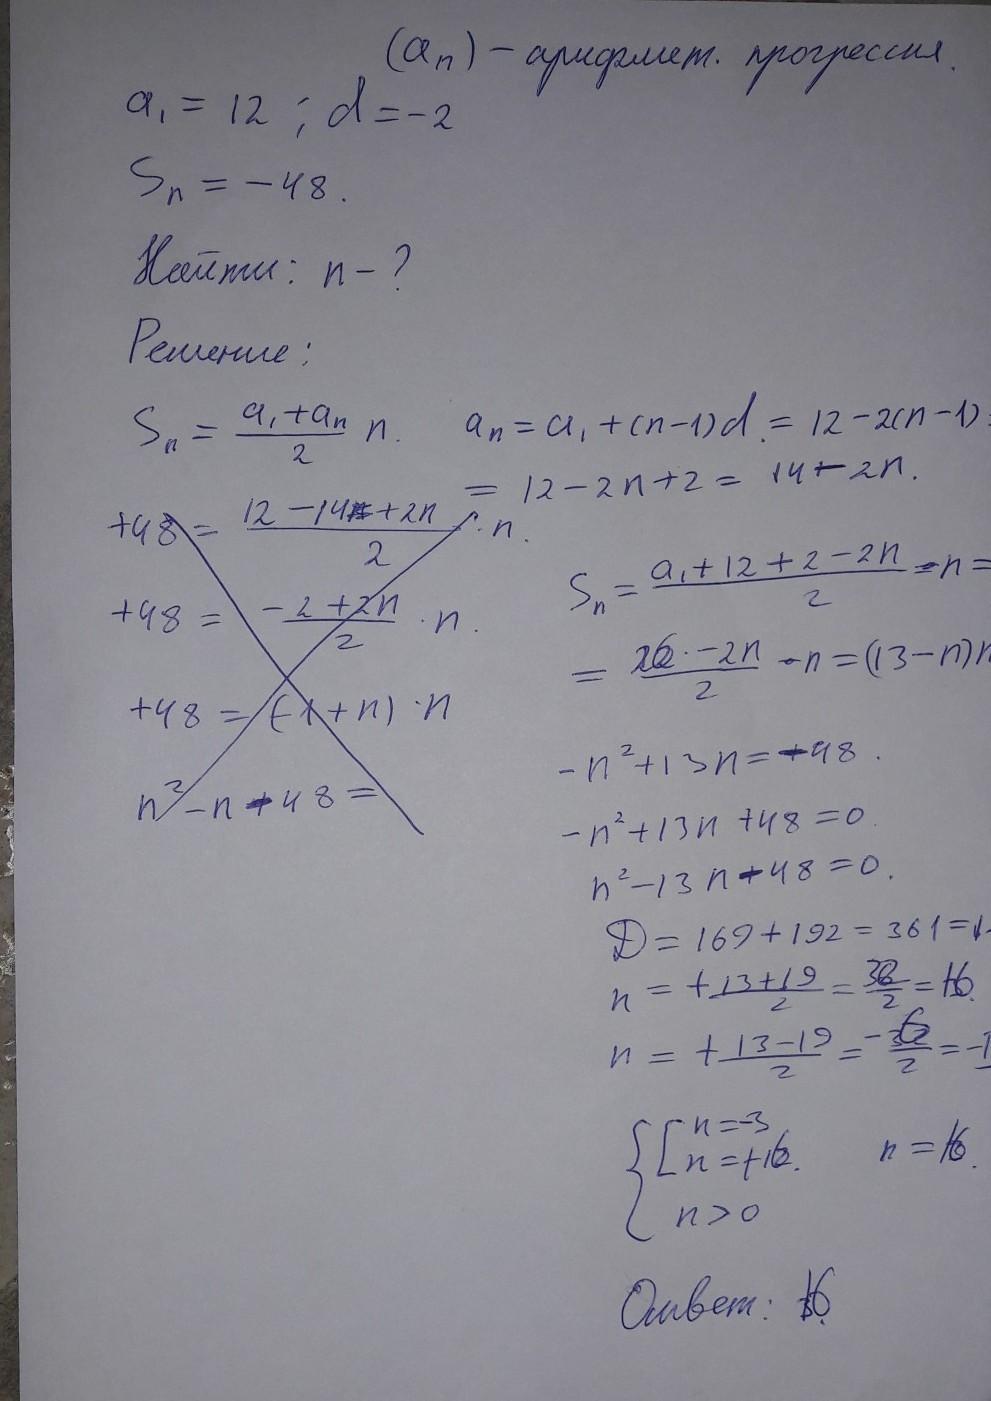 (aₙ) – арифмет. прогрессия.
a₁ = 12 ; d = -2
Sₙ = -48.
Найти: n - ?
Решение:
Sₙ = (a₁ + aₙ)/2 n. aₙ = a₁ + (n-1)d = 12 - 2(n-1) =
= 12 - 2n + 2 = 14 - 2n.
+48 = (12 - 14 + 2n)/2 · n.
+48 = (-2 + 2n)/2 · n.
+48 = (-1 + n) · n
n² - n - 48 =
Sₙ = (a₁ + 12 + 2 - 2n)/2 · n =
= (26 - 2n)/2 · n = (13 - n)n
-n² + 13n = -48.
-n² + 13n + 48 = 0.
n² - 13n - 48 = 0.
D = 169 + 192 = 361 =
n = (+13 + 19)/2 = 32/2 = 16.
n = (+13 - 19)/2 = -6/2 = -
{ [ n = -3
n = +16. n = 16.
n > 0
Ответ: 16.